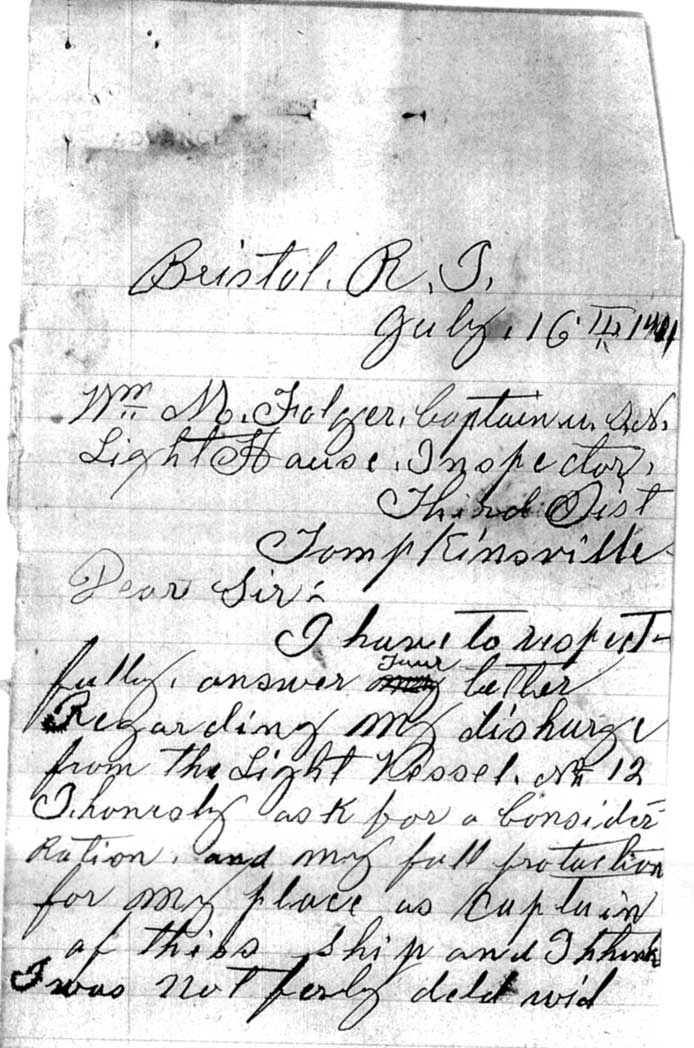 Bristol. R. I.
July. 16 TH 19
Wm M. Folger. Captain u. S. N.
Light House. Inspector.
Third Dist
Tompkinsville
Dear Sir:
I have to respect-
fully. answer Your letter
Regarding my dishurge
from the Light Vessel. No 12
I honesly ask for a Consider-
Ration. and my full protuction
for my place as Captain
of thiss ship and I think
I was not ferly deld wid